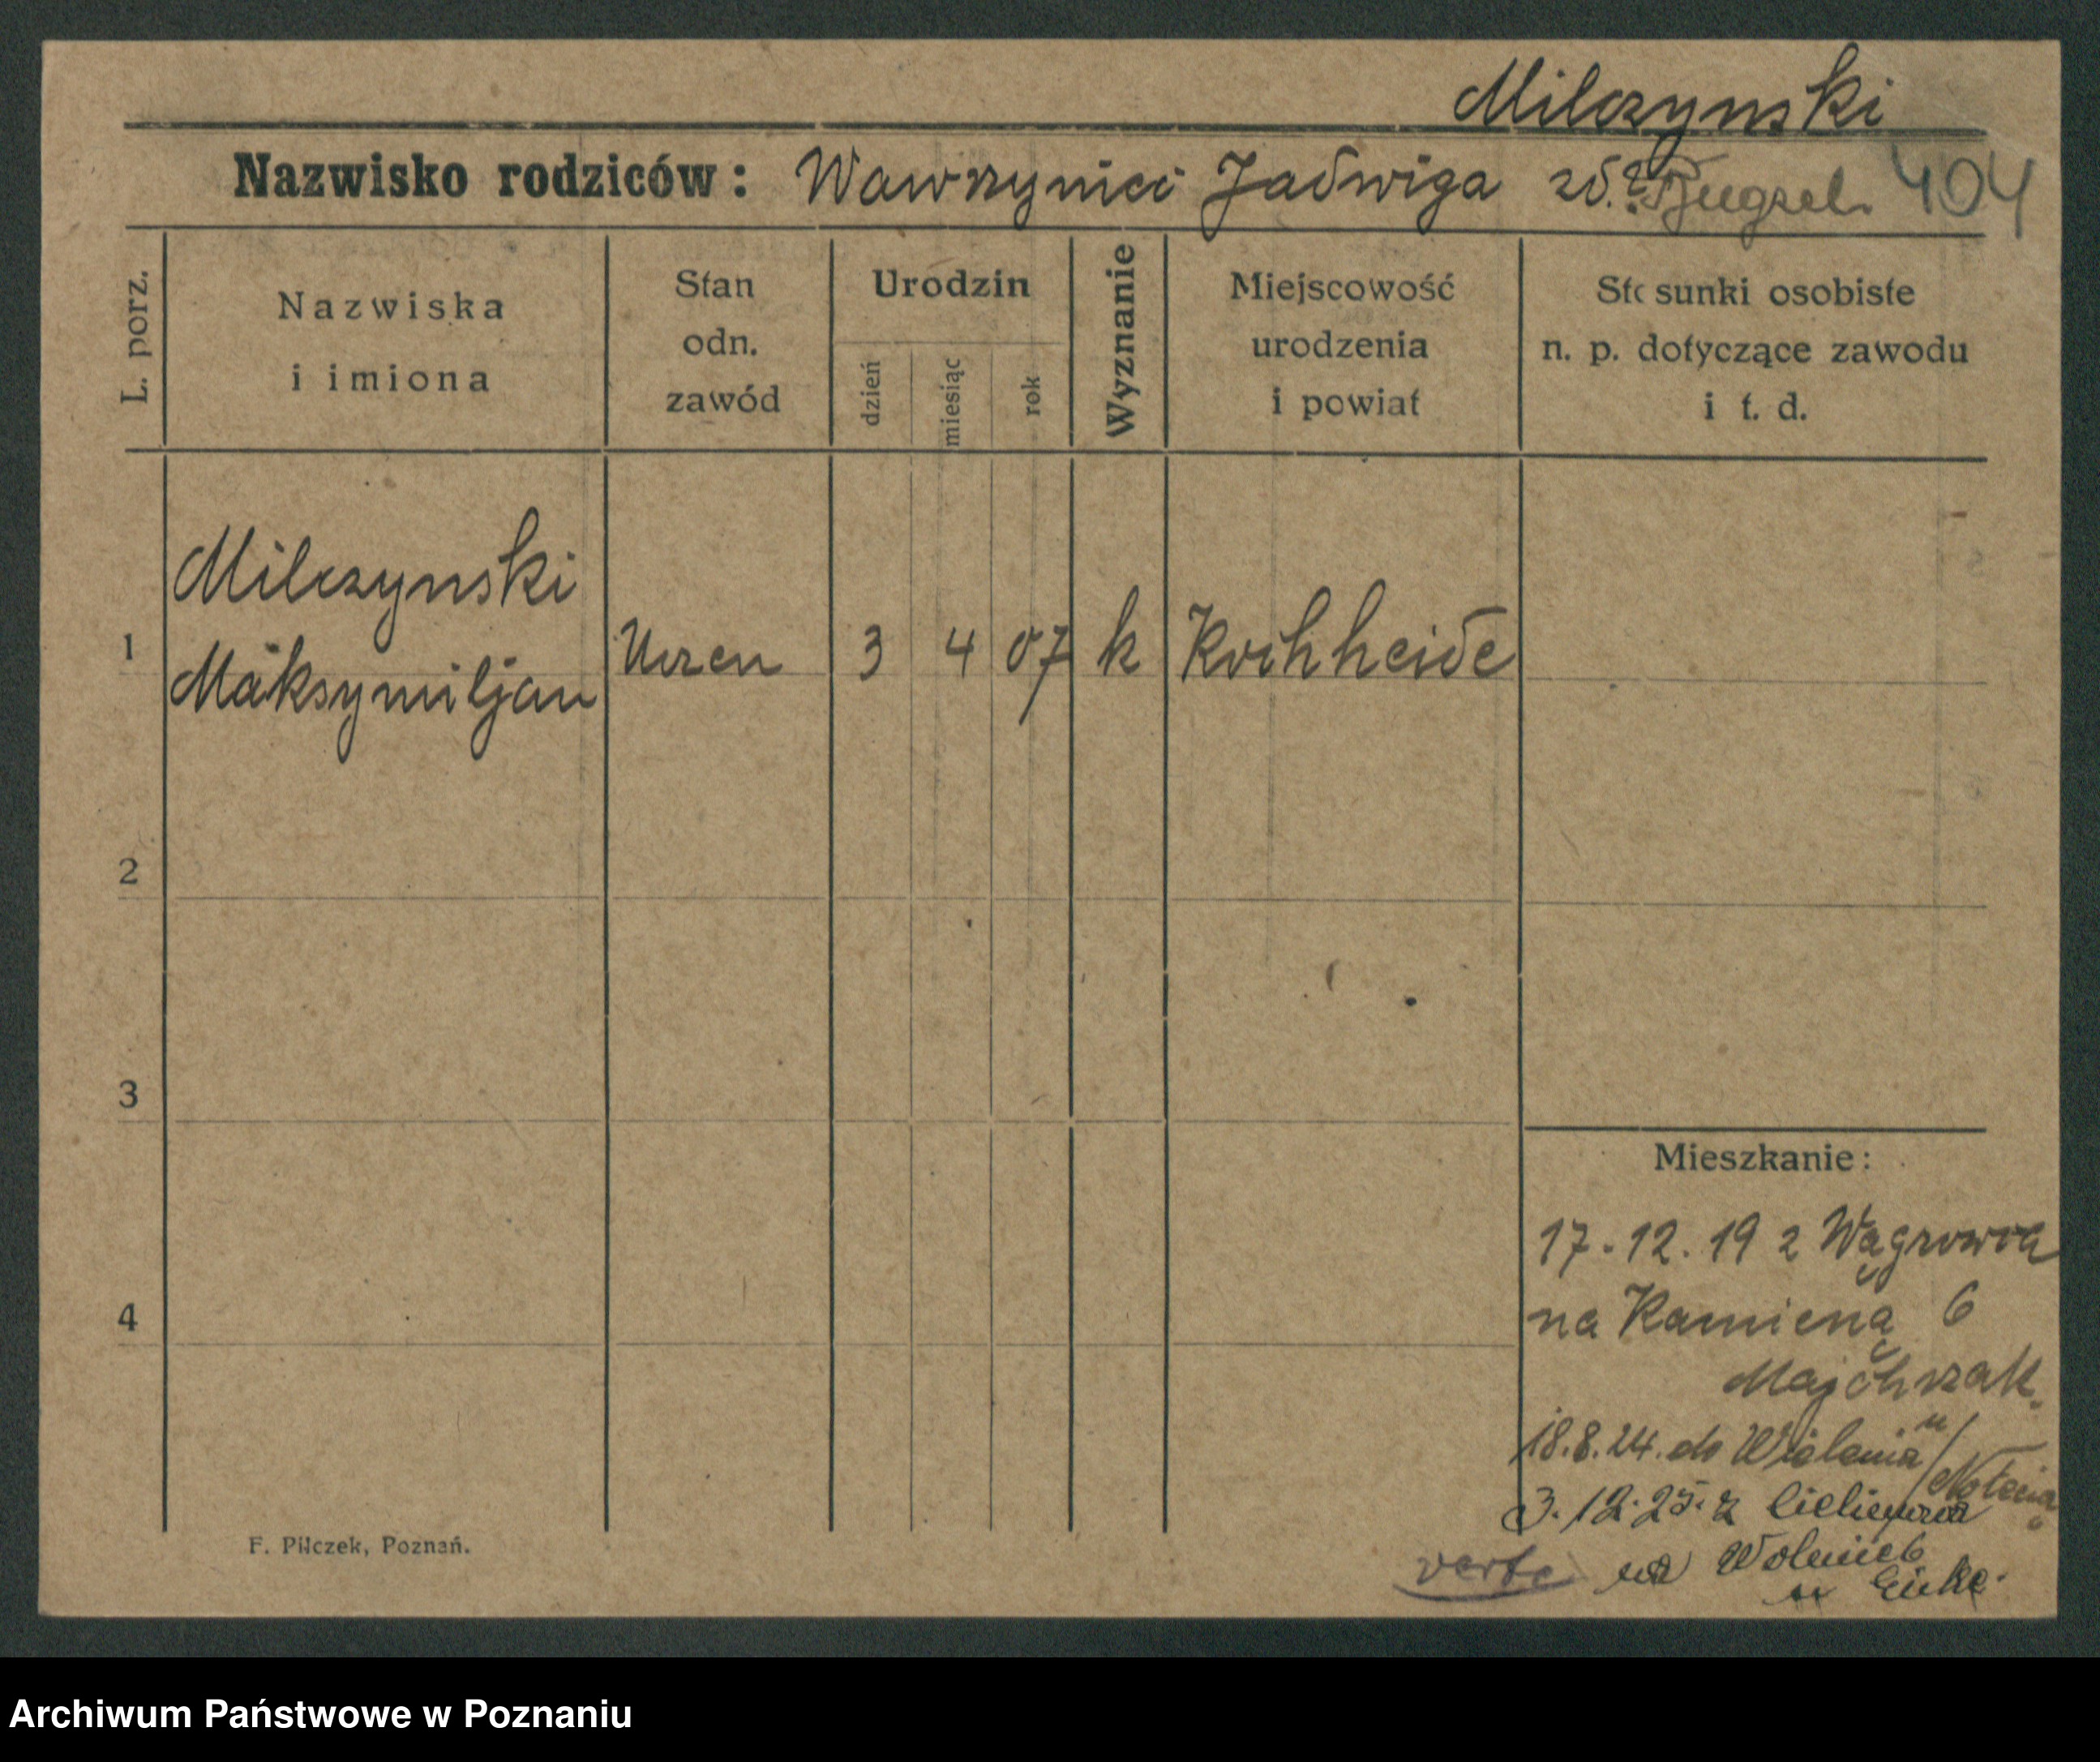 Milczynski
Nazwisko rodziców: Wawrzyniec Jadwiga zd. 404
L. porz.
Nazwiska
i imiona
Stan
odn.
zawód
Urodzin
dzień
miesiąc
rok
Wyznanie
Miejscowość
urodzenia
i powiat
Stosunki osobiste
n. p. dotyczące zawodu
i t. d.
Milczynski
1 Maksymiljan Uczen 3 4 07 k Kochheide
2
3
4
Mieszkanie:
17.12.19 z Wągrowca
na Kamieną 6
Majchrzak
18.8.24. do Wielenia n/Notecią
3.12.25. z
na Wolnice 6
u
verte
F. Pilczek, Poznań.
Archiwum Państwowe w Poznaniu